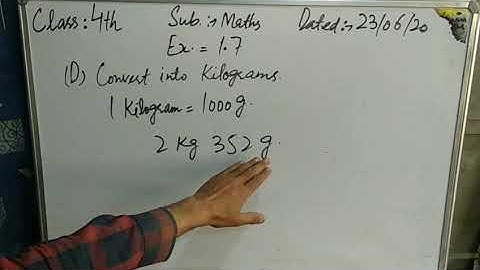 Class: 4th Sub. :- Maths Dated :- 23/06/20
Ex. = 1.7
(D) Convert into Kilograms.
1 Kilogram = 1000g.
2 Kg 352 g.